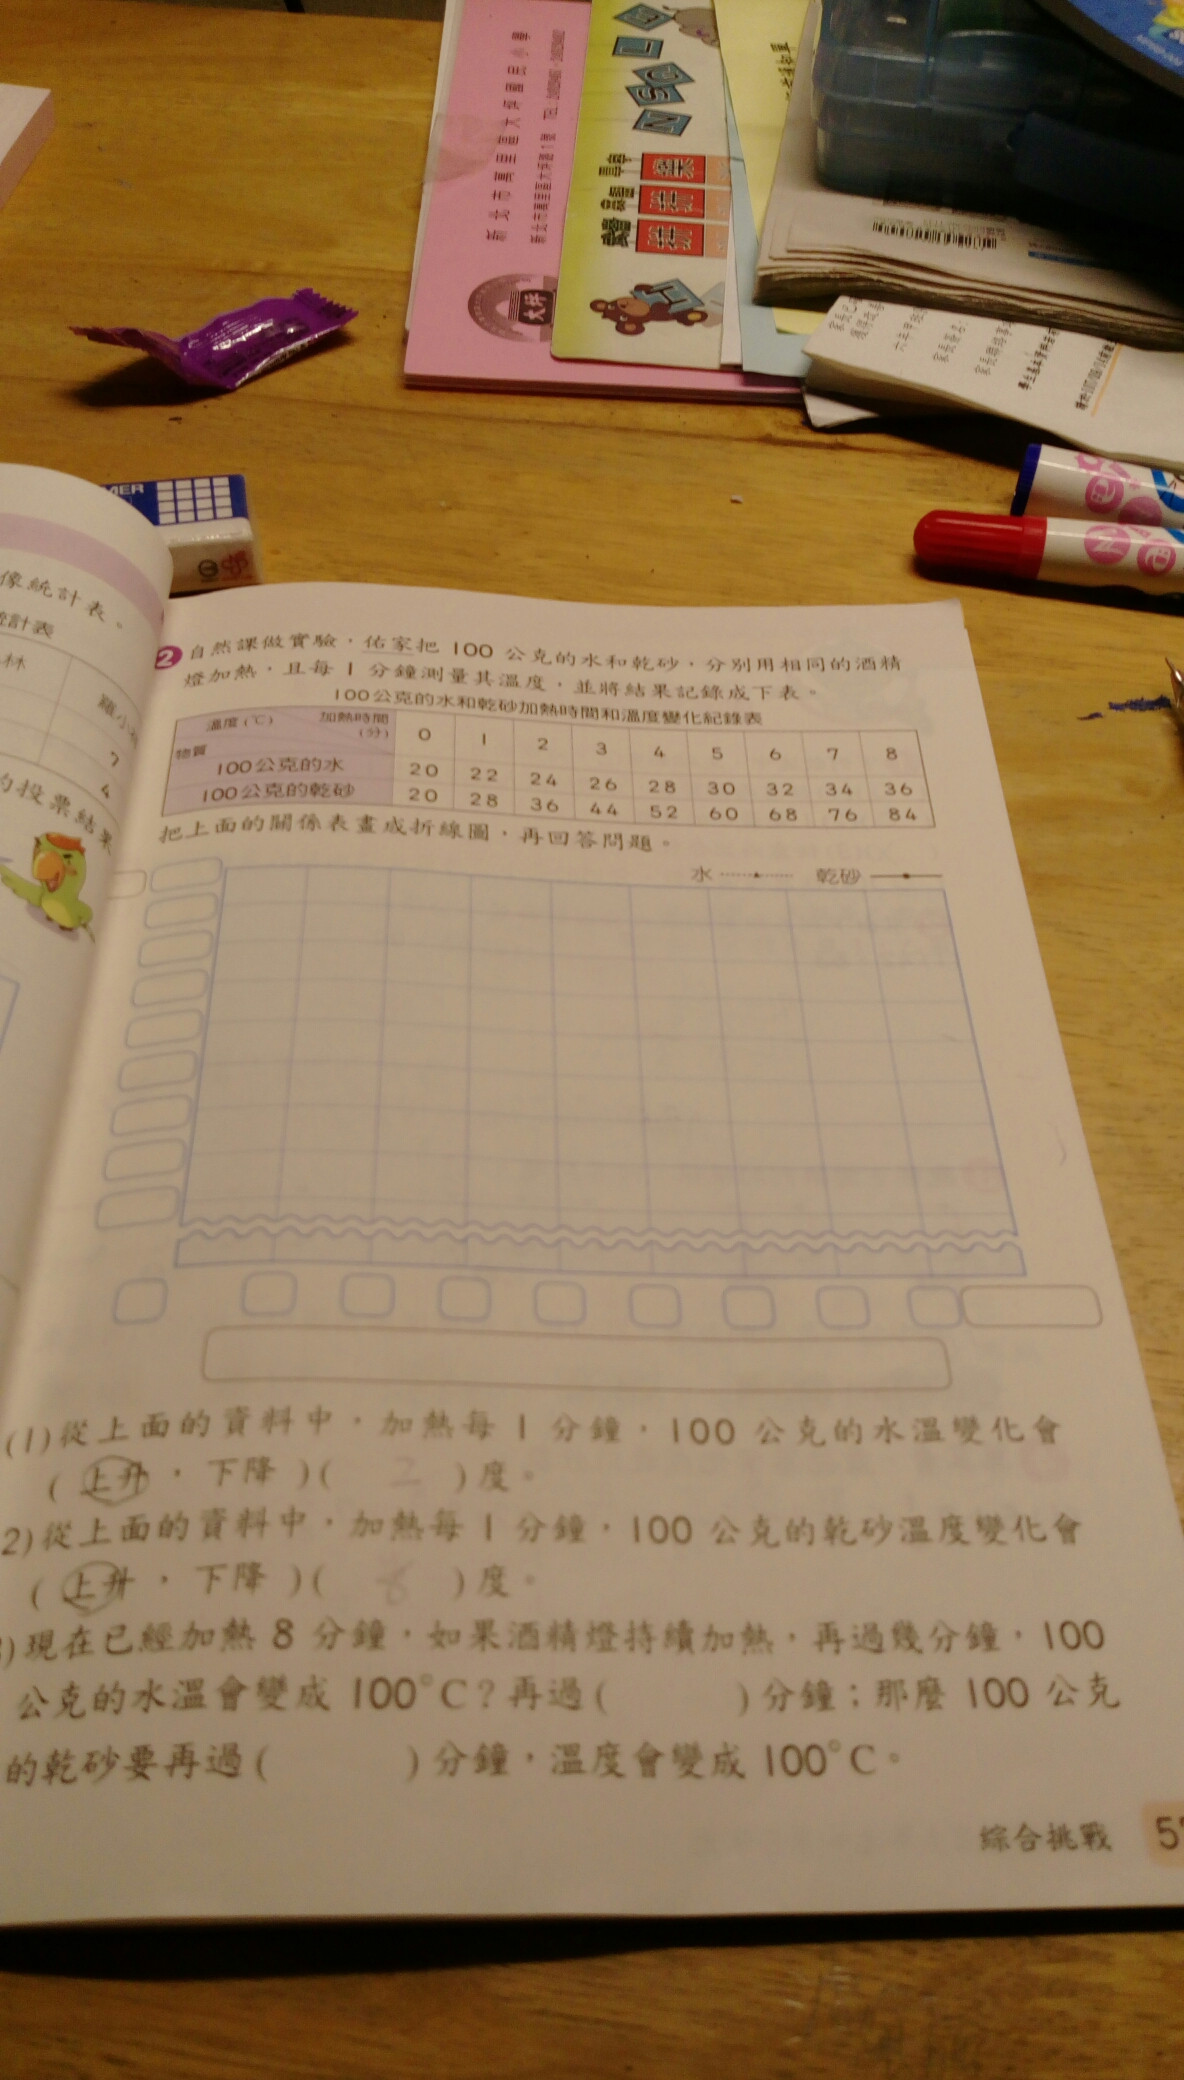 新北市萬里區大坪國民小學
大坪
N S C L
像統計表。
計表
林
羅小
7
4
的投票結果
2 自然課做實驗，佑家把 100 公克的水和乾砂，分別用相同的酒精
燈加熱，且每 1 分鐘測量其溫度，並將結果記錄成下表。
100公克的水和乾砂加熱時間和溫度變化紀錄表
溫度(℃) 加熱時間(分) 物質 0 1 2 3 4 5 6 7 8
100公克的水 20 22 24 26 28 30 32 34 36
100公克的乾砂 20 28 36 44 52 60 68 76 84
把上面的關係表畫成折線圖，再回答問題。
水 乾砂
(1)從上面的資料中，加熱每 1 分鐘，100 公克的水溫變化會
(上升，下降)( 2 )度。
2)從上面的資料中，加熱每 1 分鐘，100 公克的乾砂溫度變化會
(上升，下降)( 8 )度。
)現在已經加熱 8 分鐘，如果酒精燈持續加熱，再過幾分鐘，100
公克的水溫會變成 100°C？再過( )分鐘；那麼 100 公克
的乾砂要再過( )分鐘，溫度會變成 100°C。
綜合挑戰